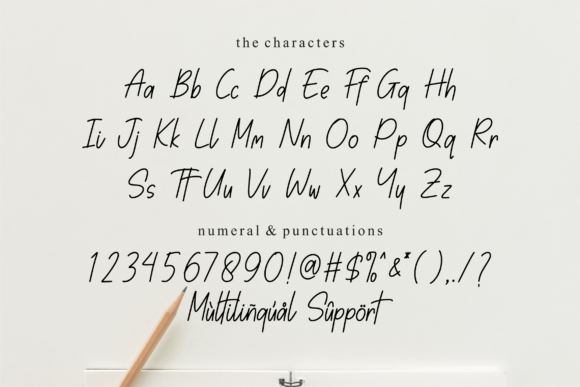 the characters
Aa Bb Cc Dd Ee Ff Gg Hh
Ii Jj Kk Ll Mm Nn Oo Pp Qq Rr
Ss Tt Uu Vv Ww Xx Yy Zz
numeral & punctuations
1234567890!@#$%^&*(),./?
Mùltiliñgúål Sûppört